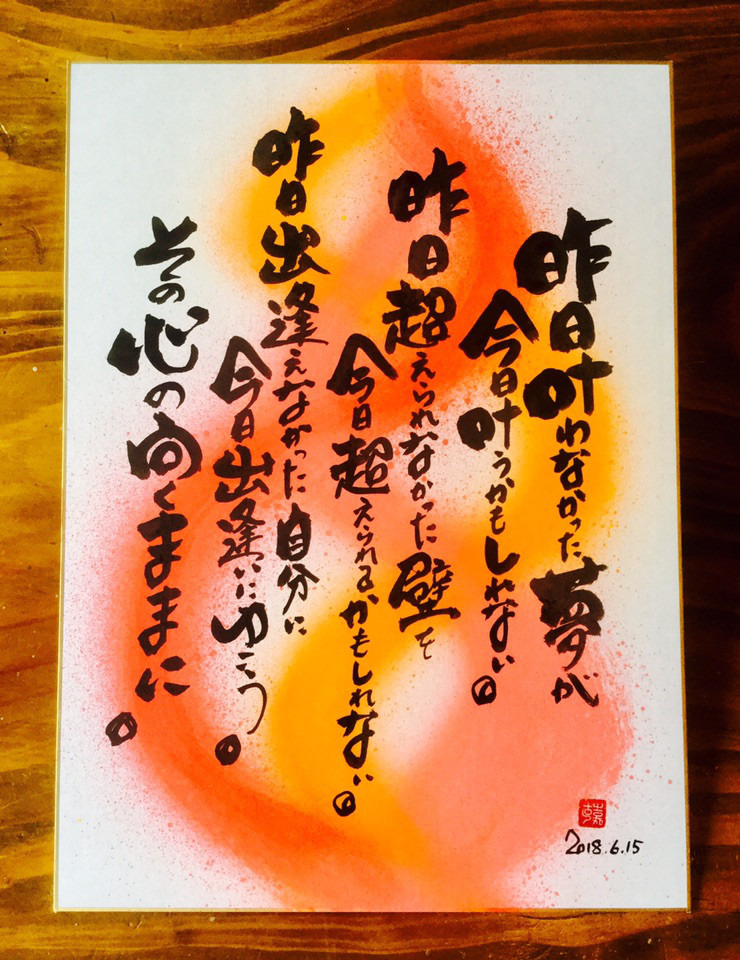 昨日叶わなかった夢が
今日叶うかもしれない。
昨日超えられなかった壁を
今日超えられるかもしれない。
昨日出逢えなかった自分に
今日出逢いにゆこう。
その心の向くままに。
2018.6.15